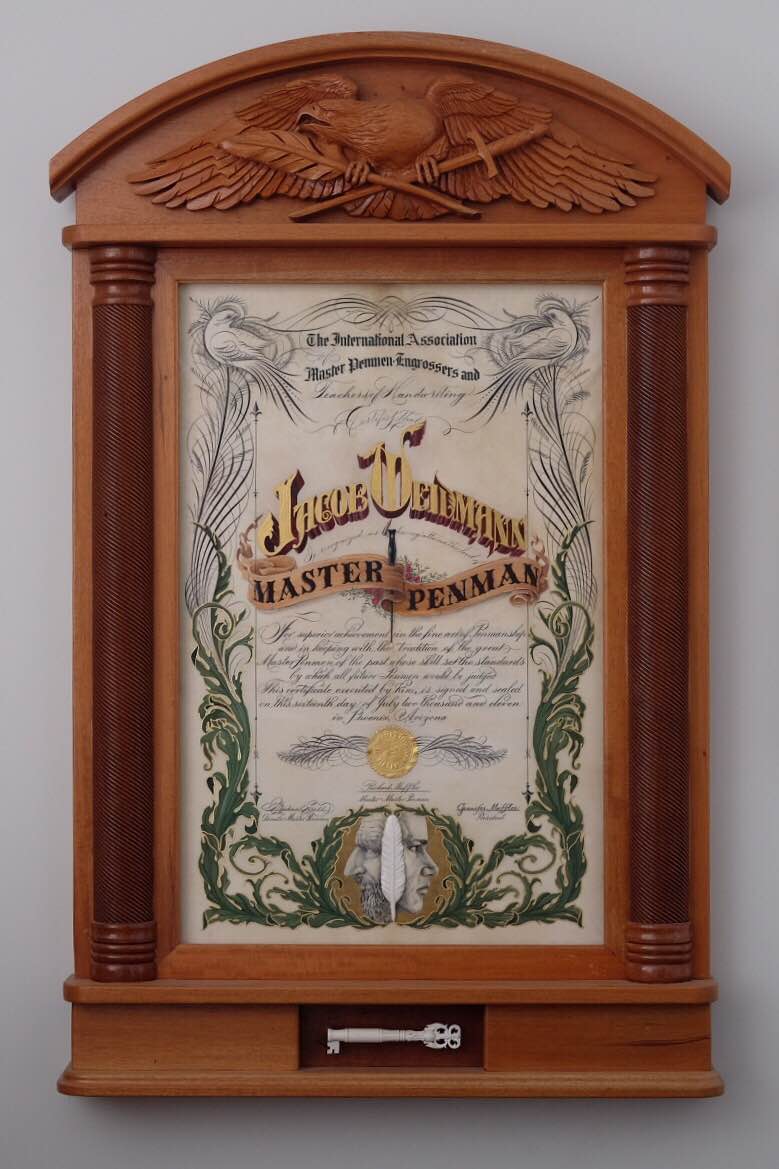 The International Association
Master Penmen Engrossers and
Teachers of Handwriting
Certifies that
Jacob Weidmann
is recognized as
MASTER PENMAN
For superior achievement in the fine art of Penmanship
and in keeping with the tradition of the great
Master Penmen of the past whose skill set the standards
by which all future Penmen would be judged
This certificate executed by him, is signed and sealed
on this sixteenth day of July two thousand and eleven
in Phoenix, Arizona
Master Penman
Master Penman
President